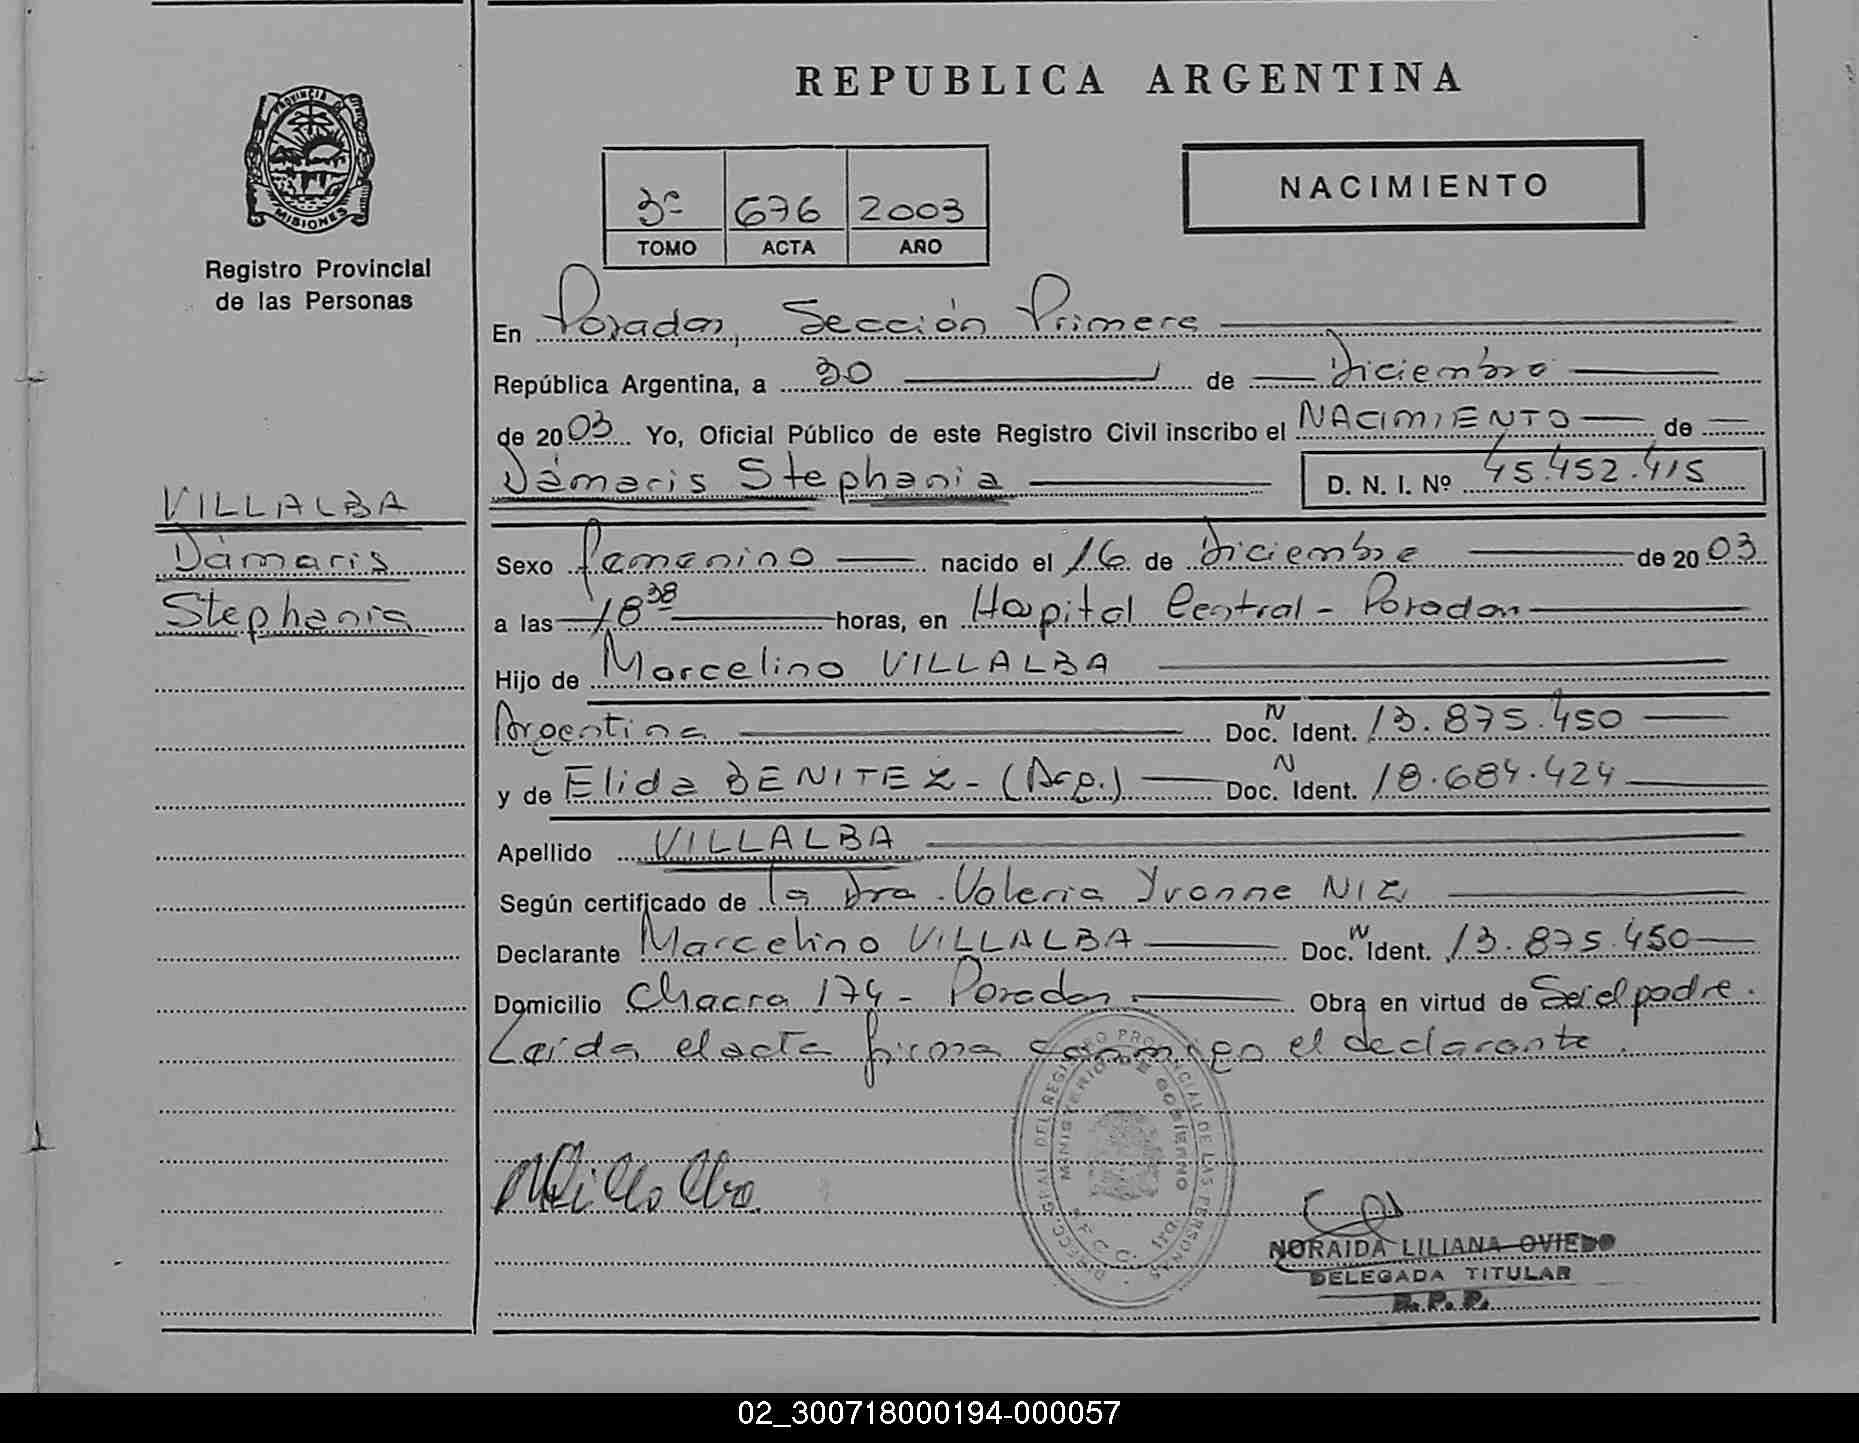 REPUBLICA ARGENTINA
PROVINCIA DE
MISIONES
Registro Provincial
de las Personas
3º 676 2003
TOMO ACTA AÑO
NACIMIENTO
En Posadas, Sección Primera
República Argentina, a 30 de Diciembre
de 2003 Yo, Oficial Público de este Registro Civil inscribo el NACIMIENTO de
Dámaris Stephania D. N. I. Nº 45.452.415
VILLALBA
Dámaris
Stephania
Sexo femenino nacido el 16 de Diciembre de 2003
a las 18 38 horas, en Hospital Central - Posadas
Hijo de Marcelino VILLALBA
Argentina Doc. N Ident. 13.875.450
y de Elida BENITEZ - (Arg.) Doc. N Ident. 18.684.424
Apellido VILLALBA
Según certificado de la Dra. Valeria Yvonne NIZ
Declarante Marcelino VILLALBA Doc. N Ident. 13.875.450
Domicilio Chacra 174 - Posadas. Obra en virtud de Ser el padre.
Leída el acta firma conmigo el declarante.
DIRECC. GRAL DEL REGISTRO PROVINCIAL DE LAS PERSONAS
MINISTERIO DE GOBIERNO
MVillalba
NORAIDA LILIANA OVIEDO
DELEGADA TITULAR
R. P. P.
02_300718000194-000057